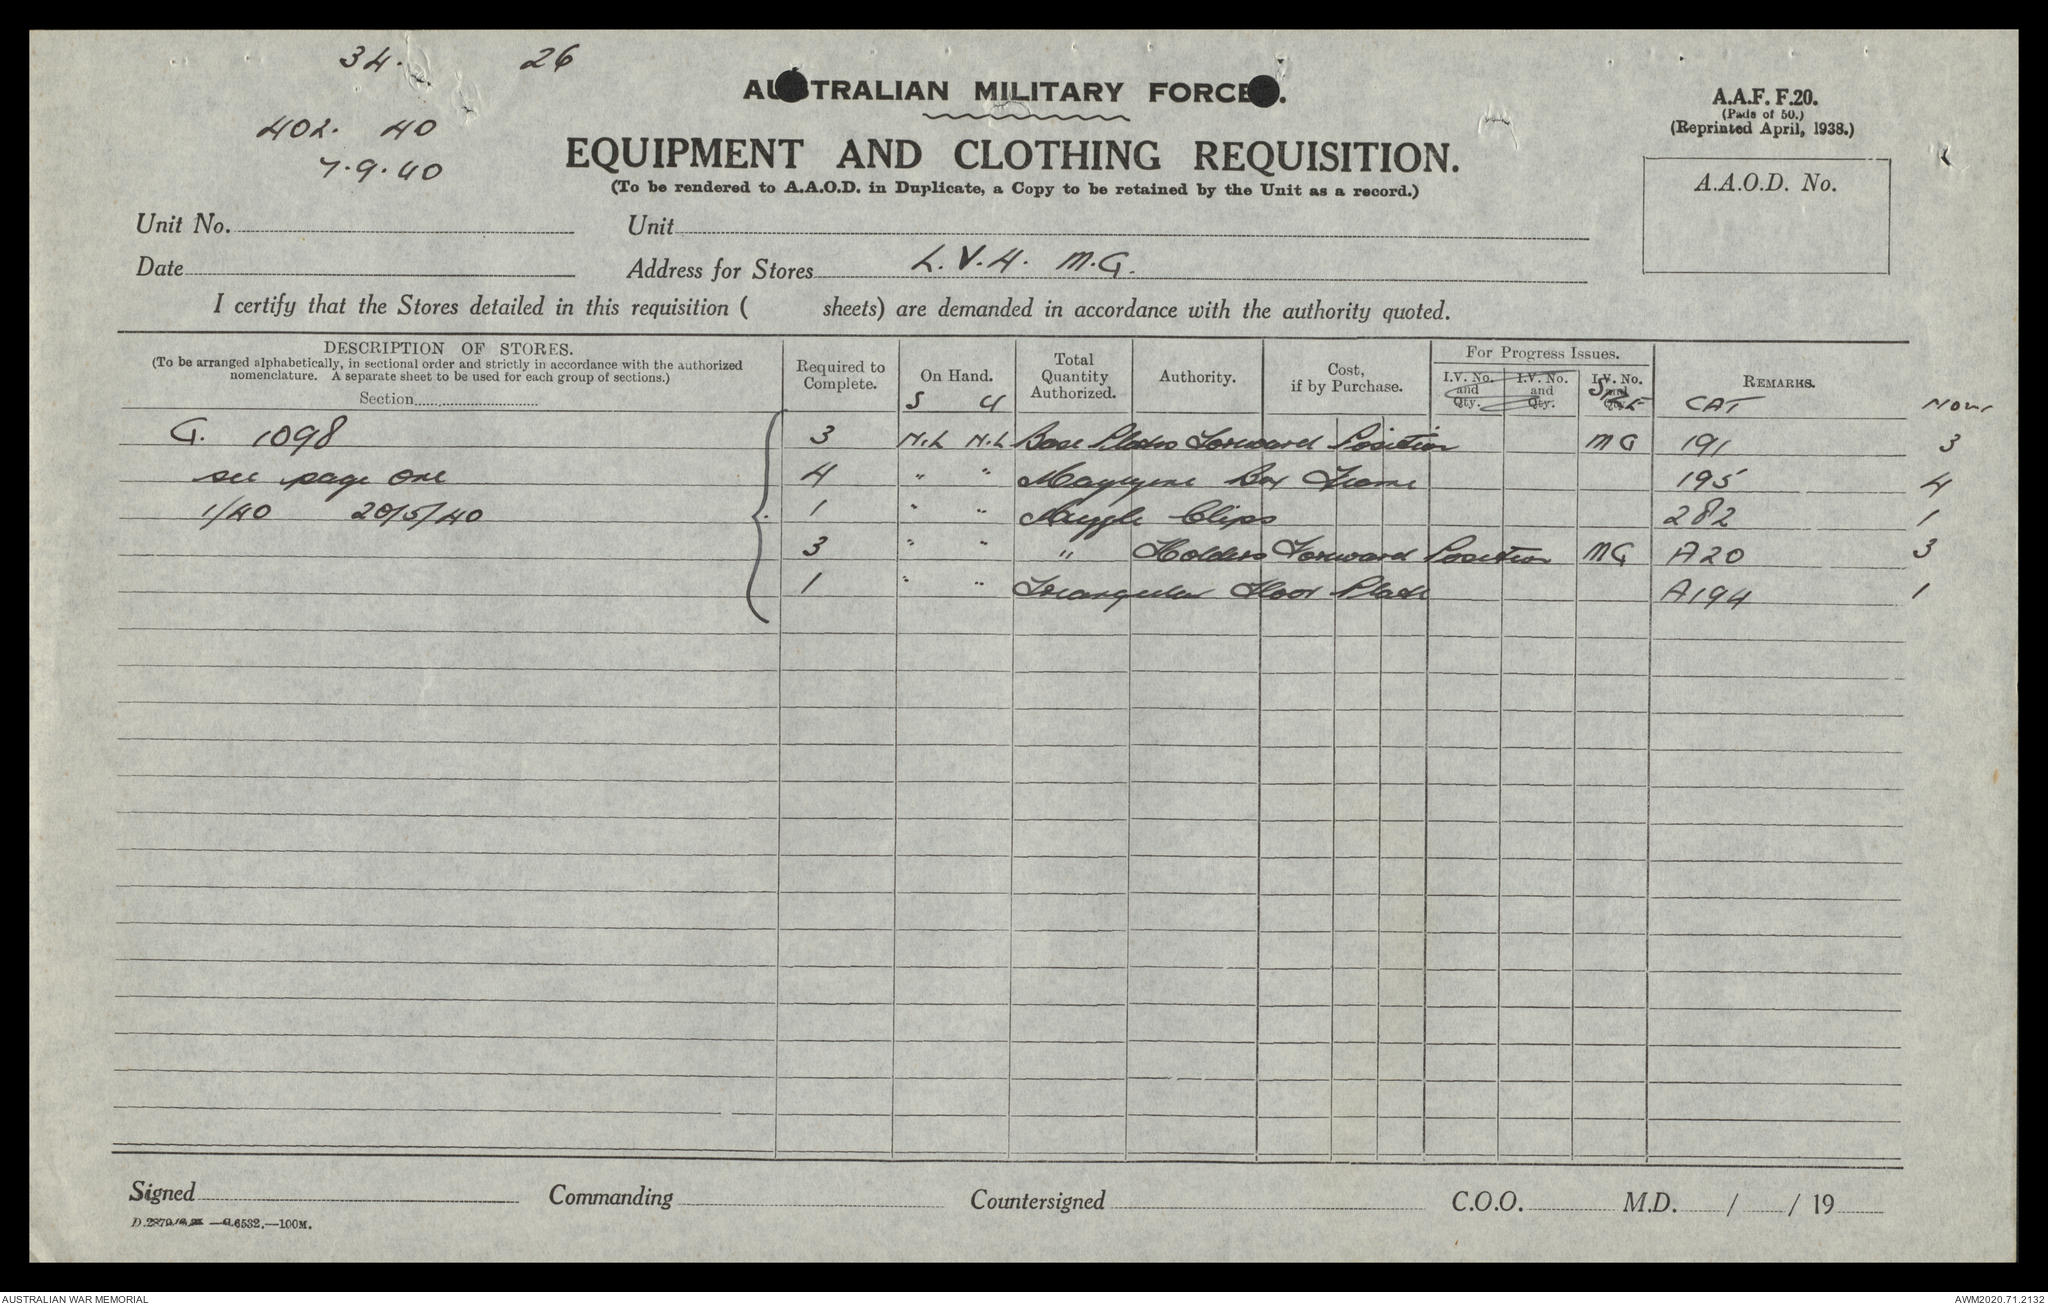 34. 26
AUSTRALIAN MILITARY FORCES.
402. 40
7.9.40
A.A.F. F.20.
(Pads of 50.)
(Reprinted April, 1938.)
EQUIPMENT AND CLOTHING REQUISITION.
(To be rendered to A.A.O.D. in Duplicate, a Copy to be retained by the Unit as a record.)
A.A.O.D. No.
Unit No. Unit
Date Address for Stores L.V.H. M.G.
I certify that the Stores detailed in this requisition ( sheets) are demanded in accordance with the authority quoted.
DESCRIPTION OF STORES.
(To be arranged alphabetically, in sectional order and strictly in accordance with the authorized
nomenclature. A separate sheet to be used for each group of sections.)
Section
Required to Complete.
On Hand.
S U
Total Quantity Authorized.
Authority.
Cost, if by Purchase.
For Progress Issues.
I.V. No. and Qty. I.V. No. and Qty. I.V. No. and Qty.
REMARKS.
CAT
G. 1098 3 N.L N.L Base Plates Forward Position MG 191 3
see page one 4 " " Magazine Box Frame 195 4
1/40 20/5/40 1 " " Clips 282 1
3 " " " Holders Forward Position MG A20 3
1 " " Triangular Floor Plate A194 1
Signed Commanding Countersigned C.O.O. M.D. / / 19
6532.—100M.
AUSTRALIAN WAR MEMORIAL
AWM2020.71.2132